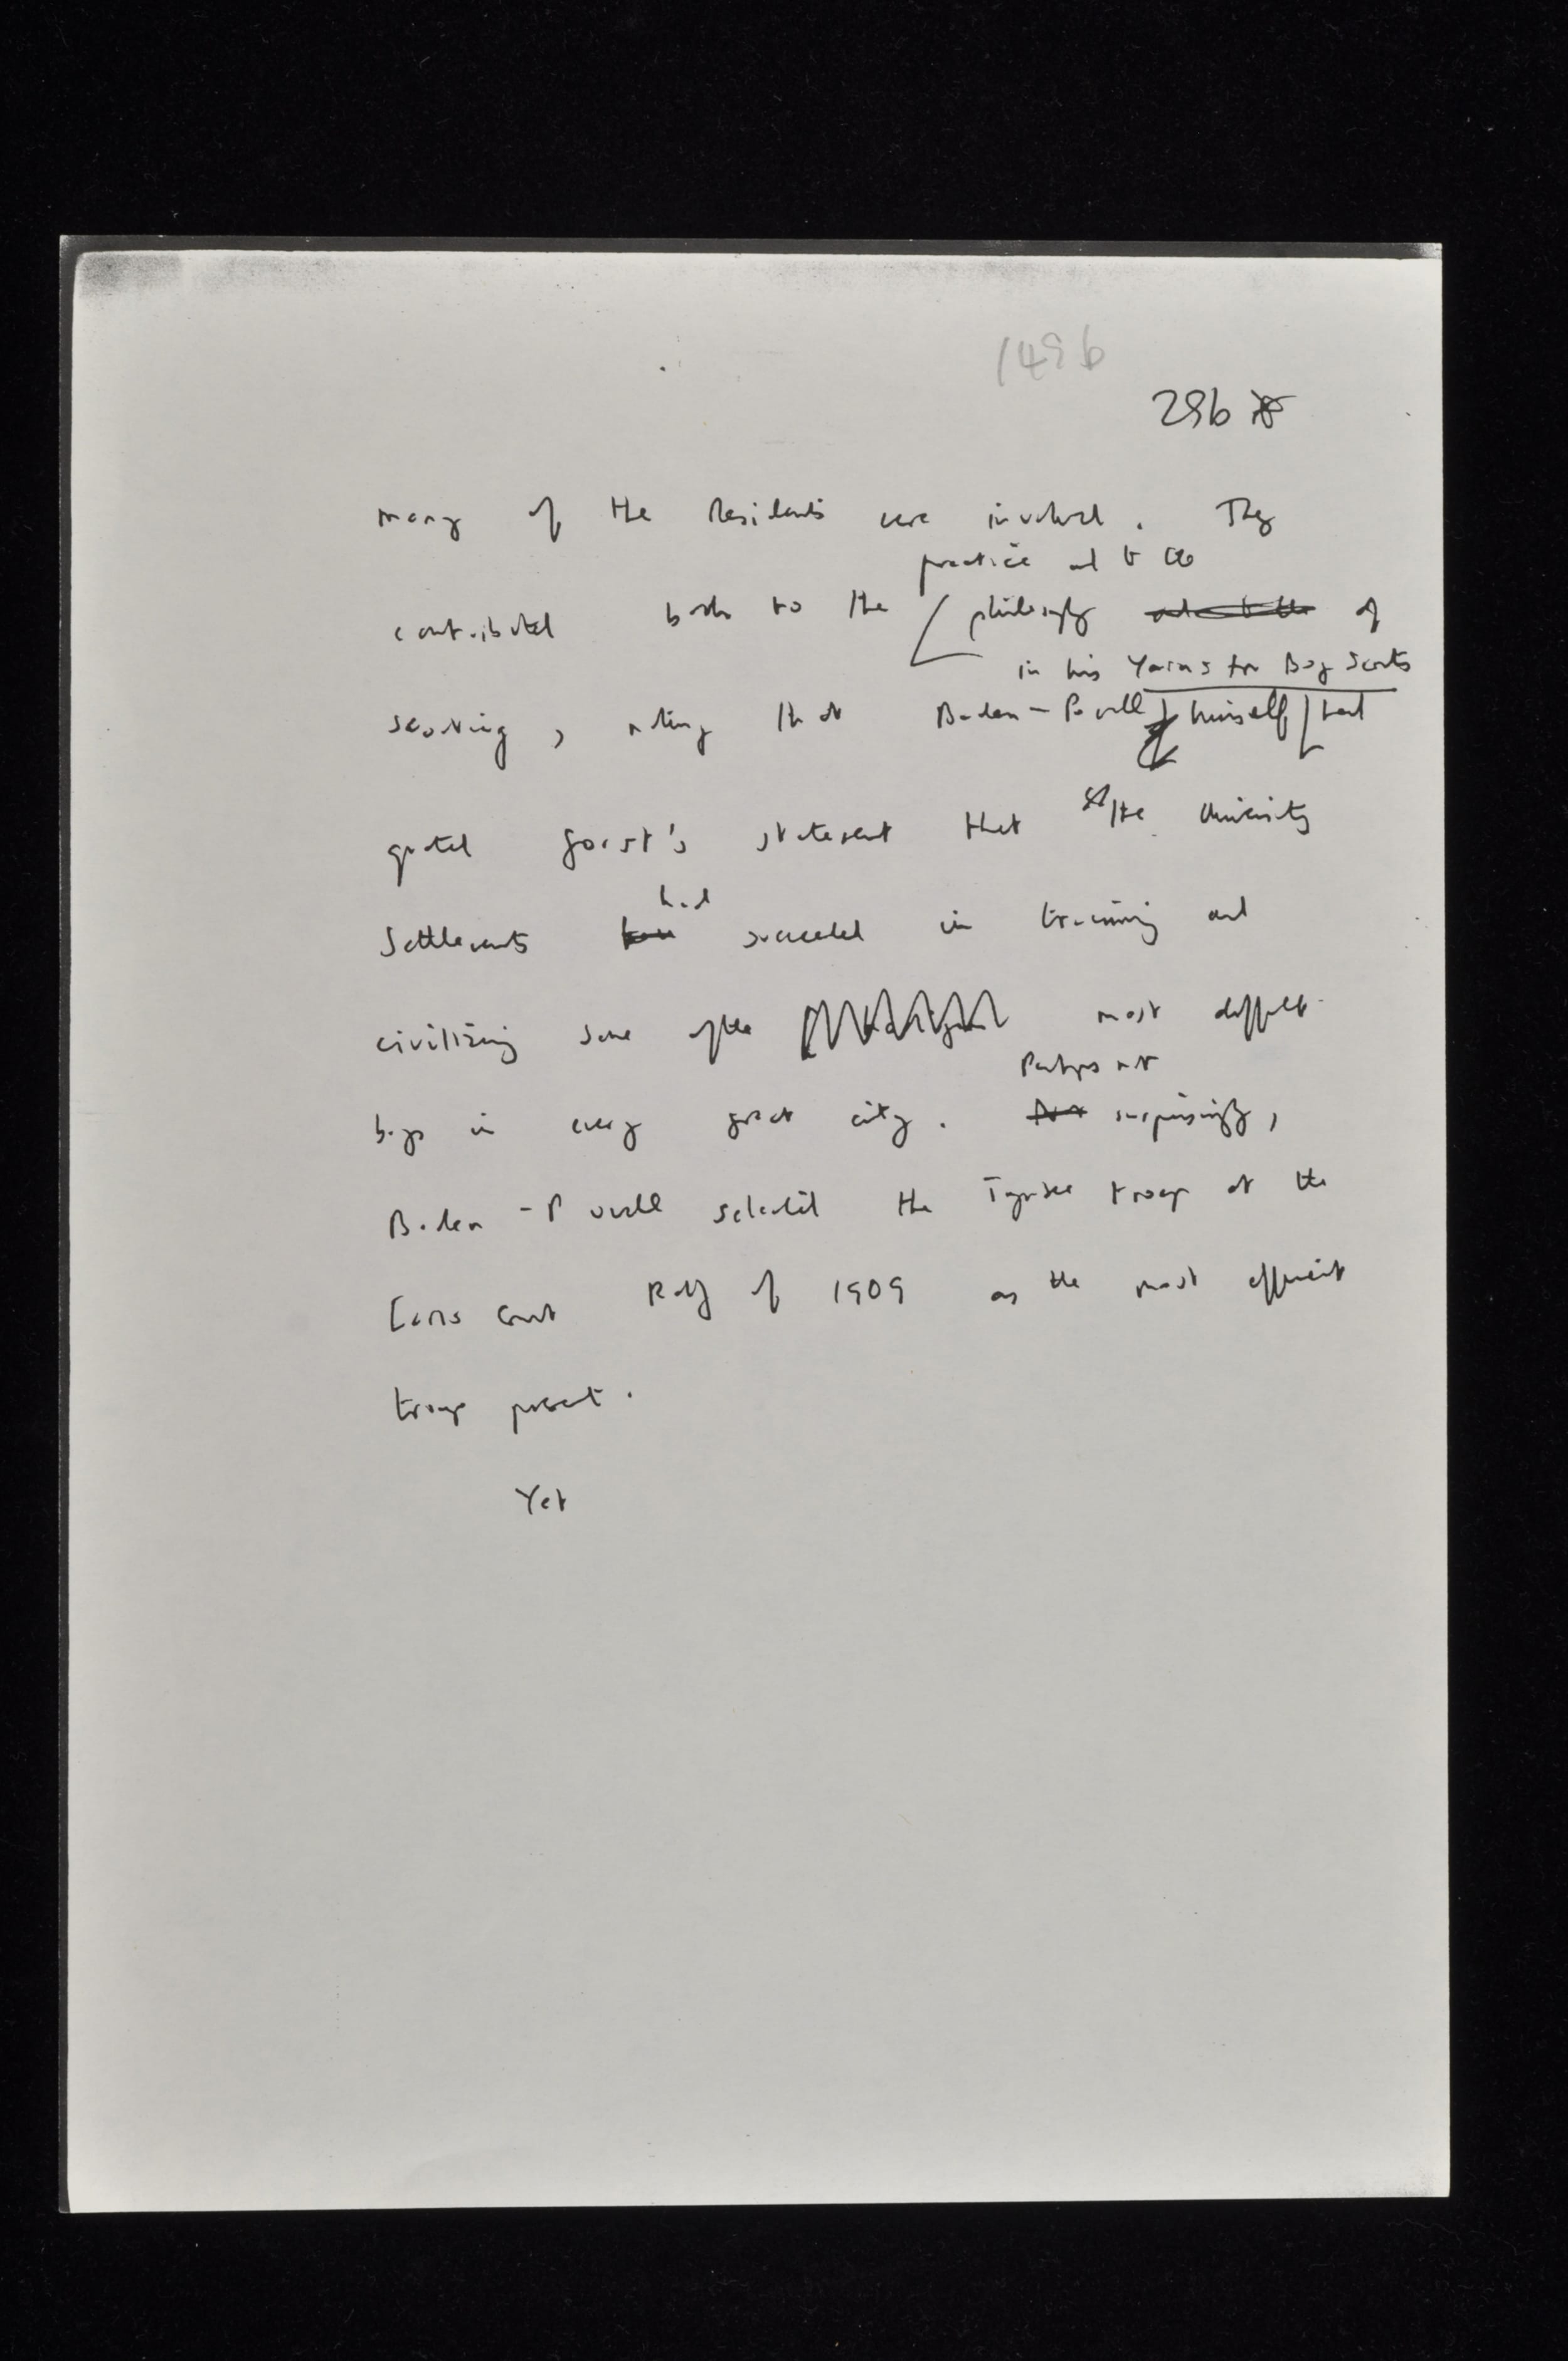 149b
29b
many of the Residents were involved. They
practice and to the
contributed both to the philosophy and to the of
in his Yarns for Boy Scouts
scouting, noting that Baden-Powell himself had
quoted Gorst's statement that the University
had
Settlements have succeeded in training and
civilizing some of the most difficult
Perhaps not
boys in every great city. Not surprisingly,
Baden-Powell selected the Toynbee troop at the
Earls Court Rally of 1909 as the most efficient
troop present.
Yet